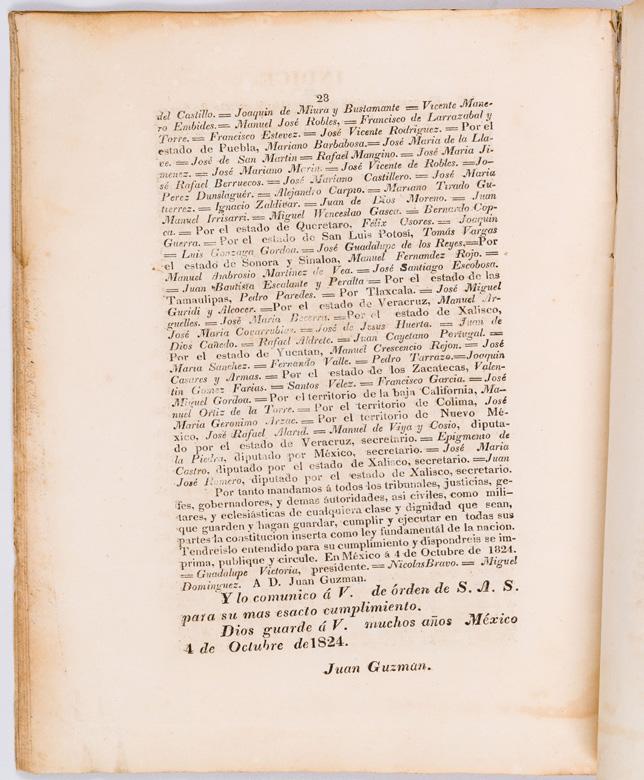 28
del Castillo. = Joaquin de Miura y Bustamante = Vicente Mane-
ro Embides. = Manuel José Robles, = Francisco de Larrazabal y
Torre. = Francisco Estevez. = José Vicente Rodriguez. = Por el
estado de Puebla, Mariano Barbabosa. = José Maria de la Lla-
ve. = José de San Martin = Rafael Mangino. = José Maria Ji-
menez. = José Mariano Marin. = José Vicente de Robles. = Jo-
sé Rafael Berruecos. = José Mariano Castillero. = José Maria
Perez Dunslaguér. = Alejandro Carpno. = Mariano Tirado Gu-
tierrez. = Ignacio Zaldivar. = Juan de Dios Moreno. = Juan
Manuel Irrisarri. = Miguel Wenceslao Gasca. = Bernardo Cop-
ca. = Por el estado de Queretaro, Félix Osores. = Joaquin
Guerra. = Por el estado de San Luis Potosí, Tomás Vargas
= Luis Gonzaga Gordoa. = José Guadalupe de los Reyes. = Por
el estado de Sonora y Sinaloa, Manuel Fernandez Rojo. =
Manuel Ambrosio Martinez de Vea. = José Santiago Escobosa.
= Juan Bautista Escalante y Peralta = Por el estado de las
Tamaulipas, Pedro Paredes. = Por Tlaxcala. = José Miguel
Guridi y Alcocer. = Por el estado de Veracruz, Manuel Ar-
guelles. = José Maria Becerra. = Por el estado de Xalisco,
José Maria Covarrubias. = José de Jesus Huerta. = Juan de
Dios Cañedo. = Rafael Aldrete. = Juan Cayetano Portugal. =
Por el estado de Yucatan, Manuel Crescencio Rejon. = José
Maria Sanchez. = Fernando Valle. = Pedro Tarrazo. = Joaquin
Casares y Armas. = Por el estado de los Zacatecas, Valen-
tin Gomez Farias. = Santos Velez. = Francisco Garcia. = José
Miguel Gordoa. = Por el territorio de la baja California, Ma-
nuel Ortiz de la Torre. = Por el territorio de Colima, José
Maria Geronimo Arzac. = Por el territorio de Nuevo Mé-
xico, José Rafael Alarid. = Manuel de Viya y Cosio, diputa-
do por el estado de Veracruz, secretario. = Epigmento de
la Piedra, diputado por México, secretario. = José Maria
Castro, diputado por el estado de Xalisco, secretario. = Juan
José Romero, diputado por el estado de Xalisco, secretario.
Por tanto mandamos á todos los tribunales, justicias, ge-
fes, gobernadores, y demas áutoridades, asi civiles, como mili-
tares, y eclesiásticas de cualquiera clase y dignidad que sean,
que guarden y hagan guardar, cumplir y ejecutar en todas sus
partes la constitucion inserta como ley fundamentál de la nacion.
Tendreislo entendido para su cumplimiento y dispondreis se im-
prima, publique y circule. En México á 4 de Octubre de 1824.
= Guadalupe Victoria, presidente. = Nicolas Bravo. = Miguel
Dominguez. A D. Juan Guzman.
Y lo comunico á V. de órden de S. A. S.
para su mas esacto cumplimiento.
Dios guarde á V. muchos años México
4 de Octubre de 1824.
Juan Guzman.